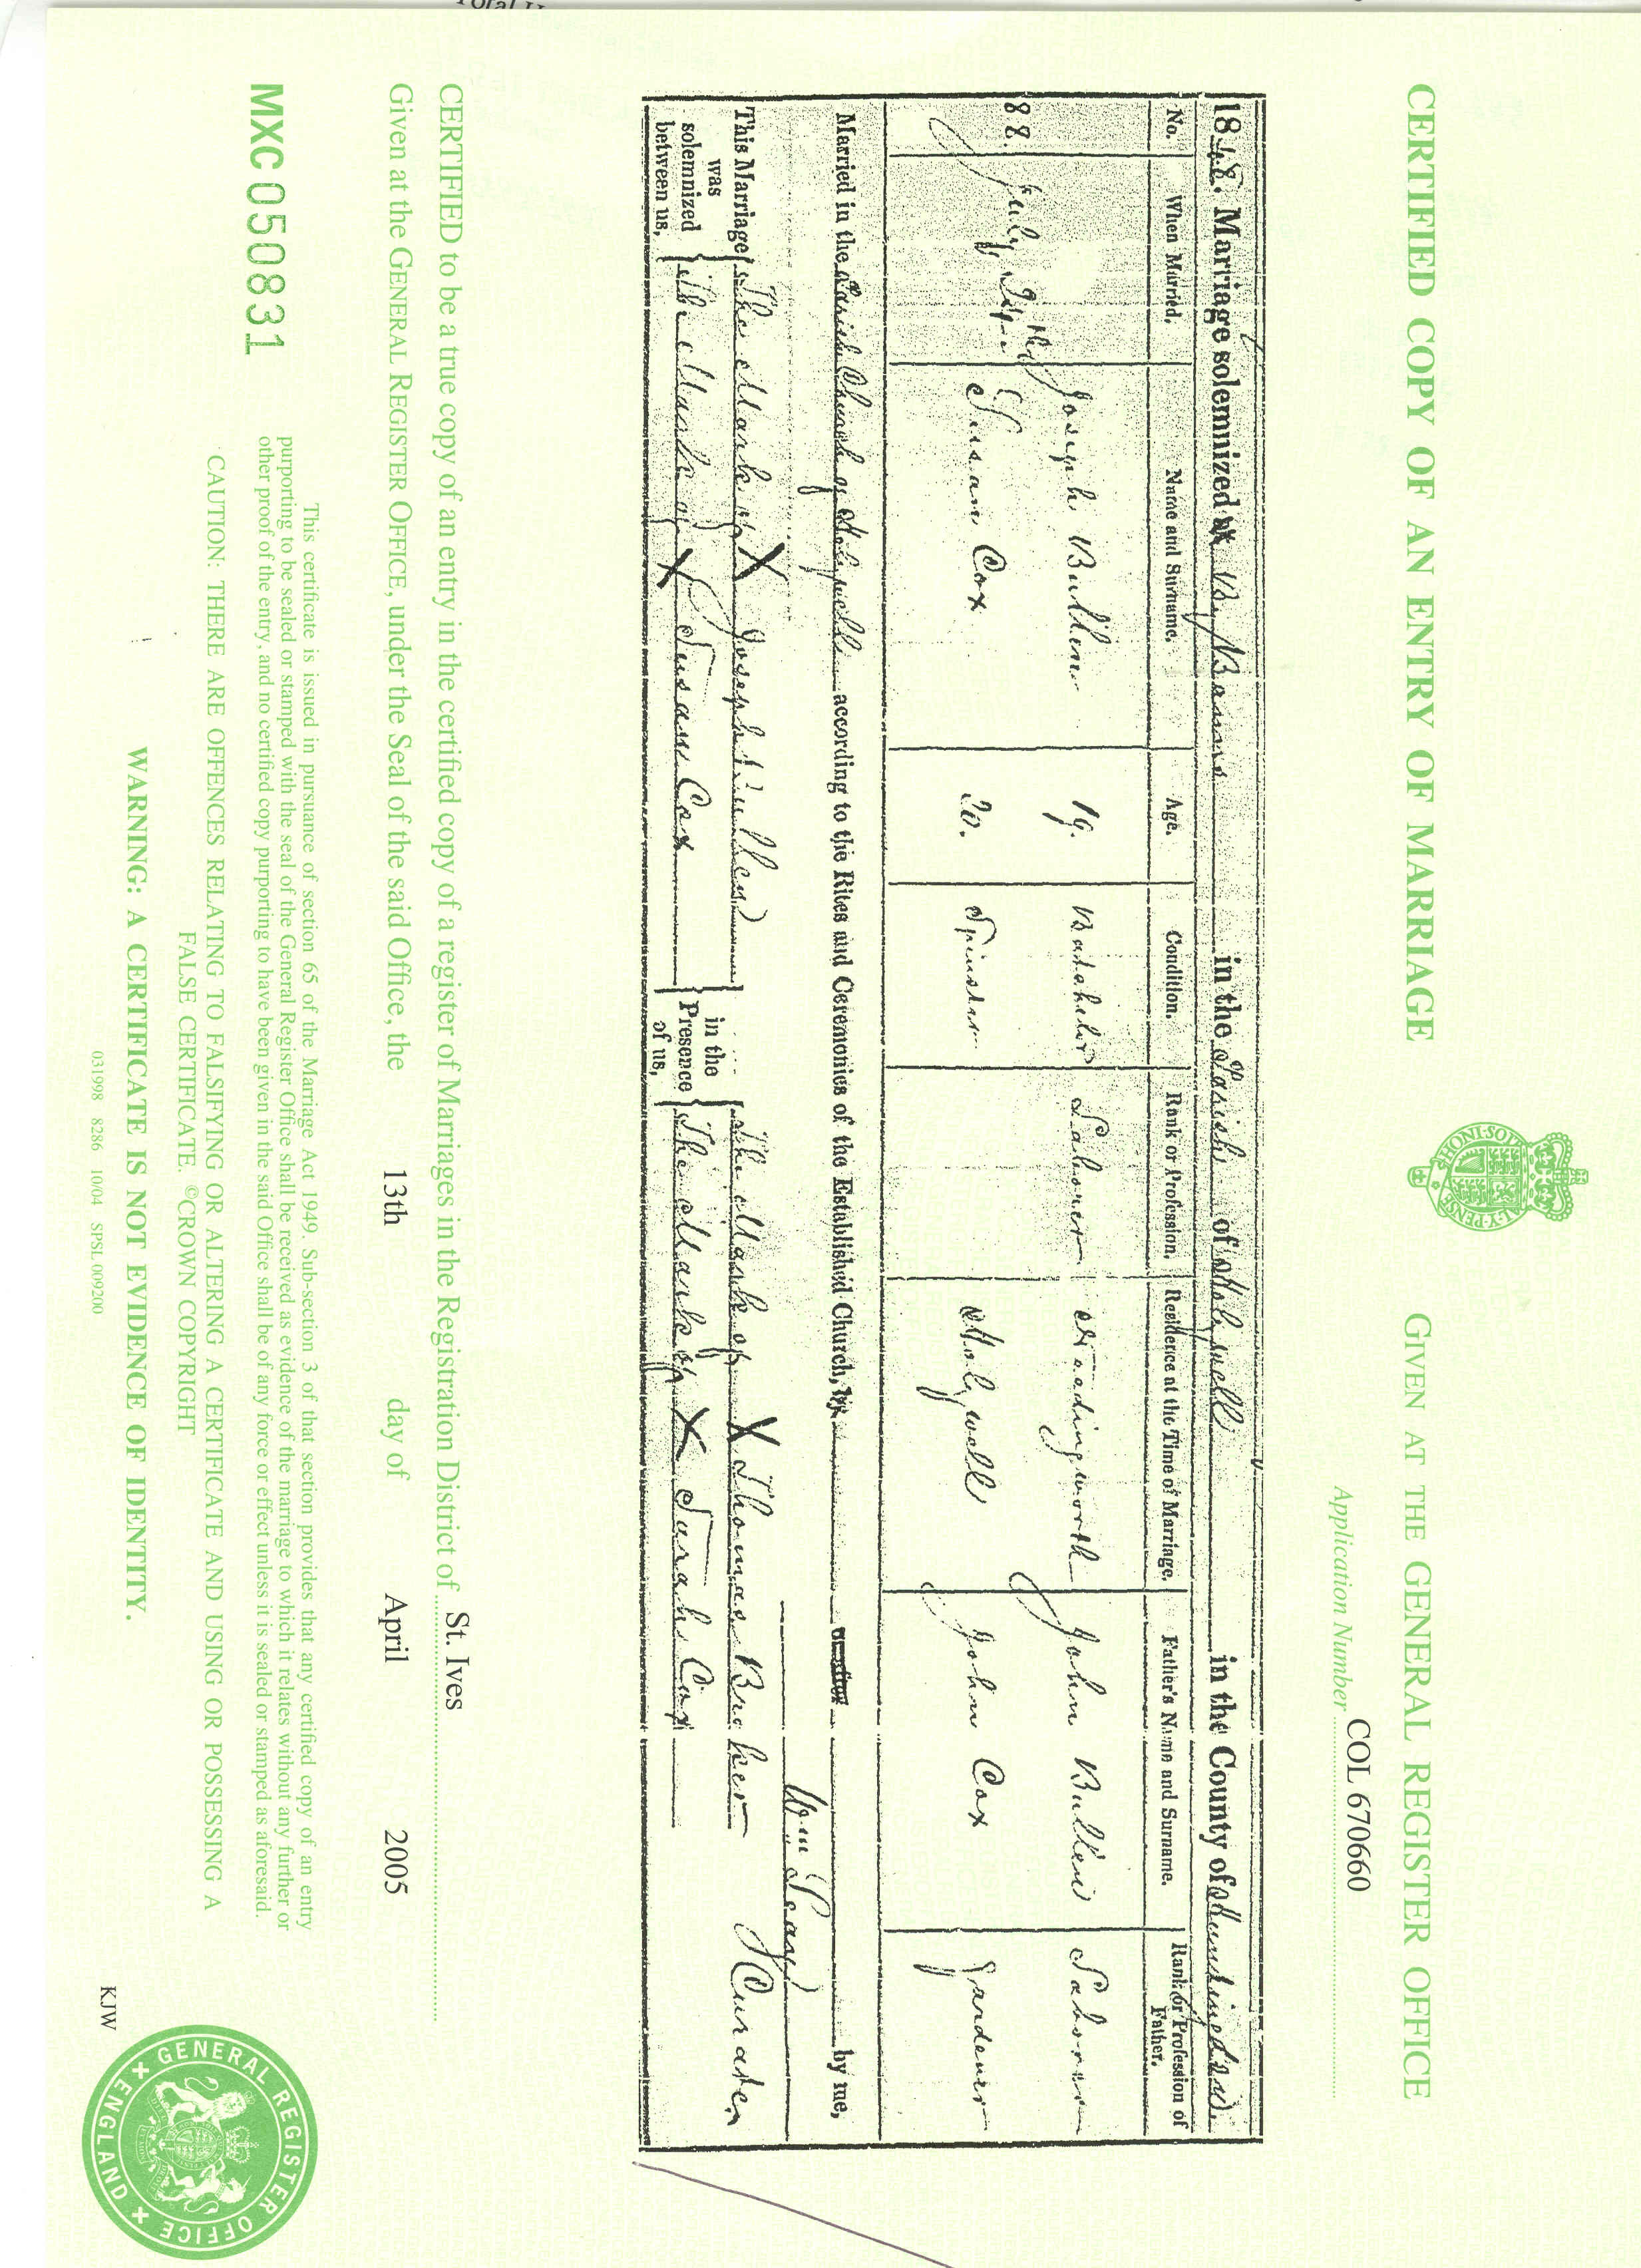 CERTIFIED COPY OF AN ENTRY OF MARRIAGE GIVEN AT THE GENERAL REGISTER OFFICE
Application Number COL 670660
1848. Marriage solemnized by Banns in the Parish of Holywell in the County of Huntingdon.
No. When Married. Name and Surname. Age. Condition. Rank or Profession. Residence at the Time of Marriage. Father's Name and Surname. Rank or Profession of Father.
88. July Joseph Bullen 19. Bachelor Laborer Hemingford John Bullen Laborer
Susan Cox 20. Spinster Holywell John Cox Gardener
Married in the Parish Church of Holywell according to the Rites and Ceremonies of the Established Church, by me,
This Marriage was solemnized between us, The Mark of X Joseph Bullen in the Presence of us, The Mark of X Thomas
The Mark of X Susan Cox The Mark of X Sarah Cox
CERTIFIED to be a true copy of an entry in the certified copy of a register of Marriages in the Registration District of St. Ives
Given at the GENERAL REGISTER OFFICE, under the Seal of the said Office, the 13th day of April 2005
MXC 050831
This certificate is issued in pursuance of section 65 of the Marriage Act 1949. Sub-section 3 of that section provides that any certified copy of an entry
purporting to be sealed or stamped with the seal of the General Register Office shall be received as evidence of the marriage to which it relates without any further or
other proof of the entry, and no certified copy purporting to have been given in the said Office shall be of any force or effect unless it is sealed or stamped as aforesaid.
CAUTION: THERE ARE OFFENCES RELATING TO FALSIFYING OR ALTERING A CERTIFICATE AND USING OR POSSESSING A
FALSE CERTIFICATE. ©CROWN COPYRIGHT
WARNING: A CERTIFICATE IS NOT EVIDENCE OF IDENTITY.
031998 8286 10/04 SPSL 009200
KJW
GENERAL REGISTER OFFICE
ENGLAND